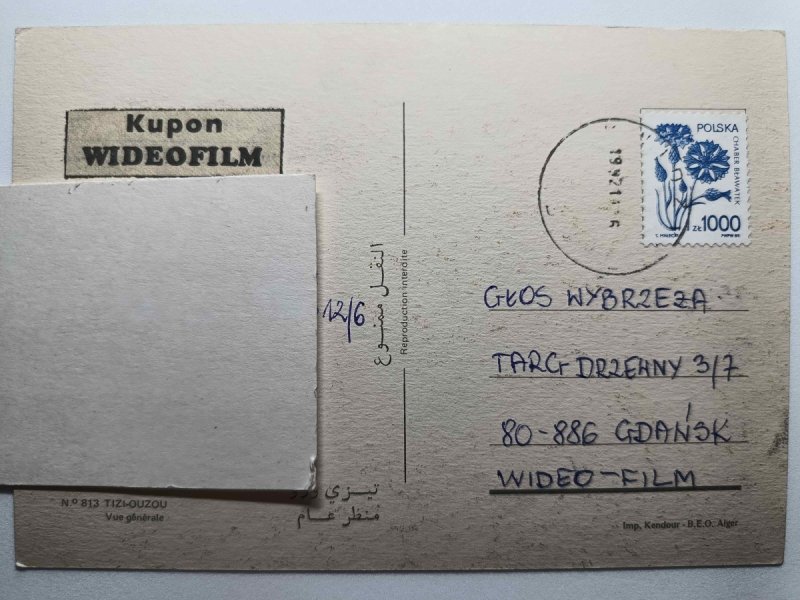 Kupon
WIDEOFILM
12/6
النقل ممنوع
Reproduction interdite
POLSKA
CHABER BŁAWATEK
ZŁ 1000
1992
GŁOS WYBRZEŻA
TARG DRZEWNY 3/7
80-886 GDAŃSK
WIDEO-FILM
N.º 813 TIZI-OUZOU
Vue générale
تيزي وزو
منظر عام
Imp. Kendour - B.E.O. Alger